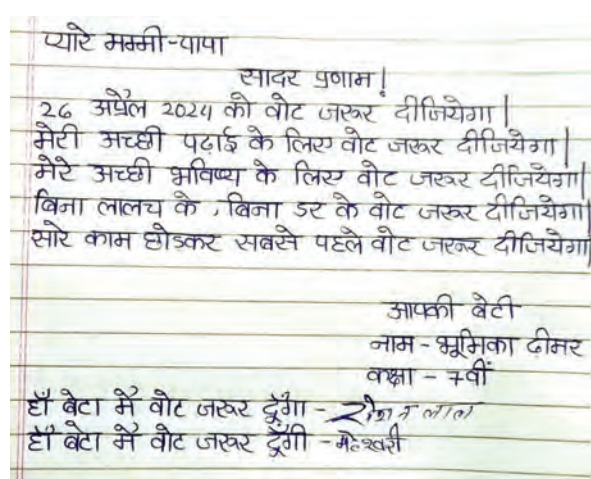 प्यारे मम्मी-पापा
सादर प्रणाम!
26 अप्रैल 2024 को वोट जरूर दीजियेगा|
मेरी अच्छी पढ़ाई के लिए वोट जरूर दीजियेगा|
मेरे अच्छी भविष्य के लिए वोट जरूर दीजियेगा|
बिना लालच के, बिना डर के वोट जरूर दीजियेगा|
सारे काम छोडकर सबसे पहले वोट जरूर दीजियेगा|
आपकी बेटी
नाम - भूमिका ढीमर
कक्षा - 7वीं
हाँ बेटा मैं वोट जरूर दूँगा - रोशन लाल
हाँ बेटा मैं वोट जरूर दूँगी - महेश्वरी